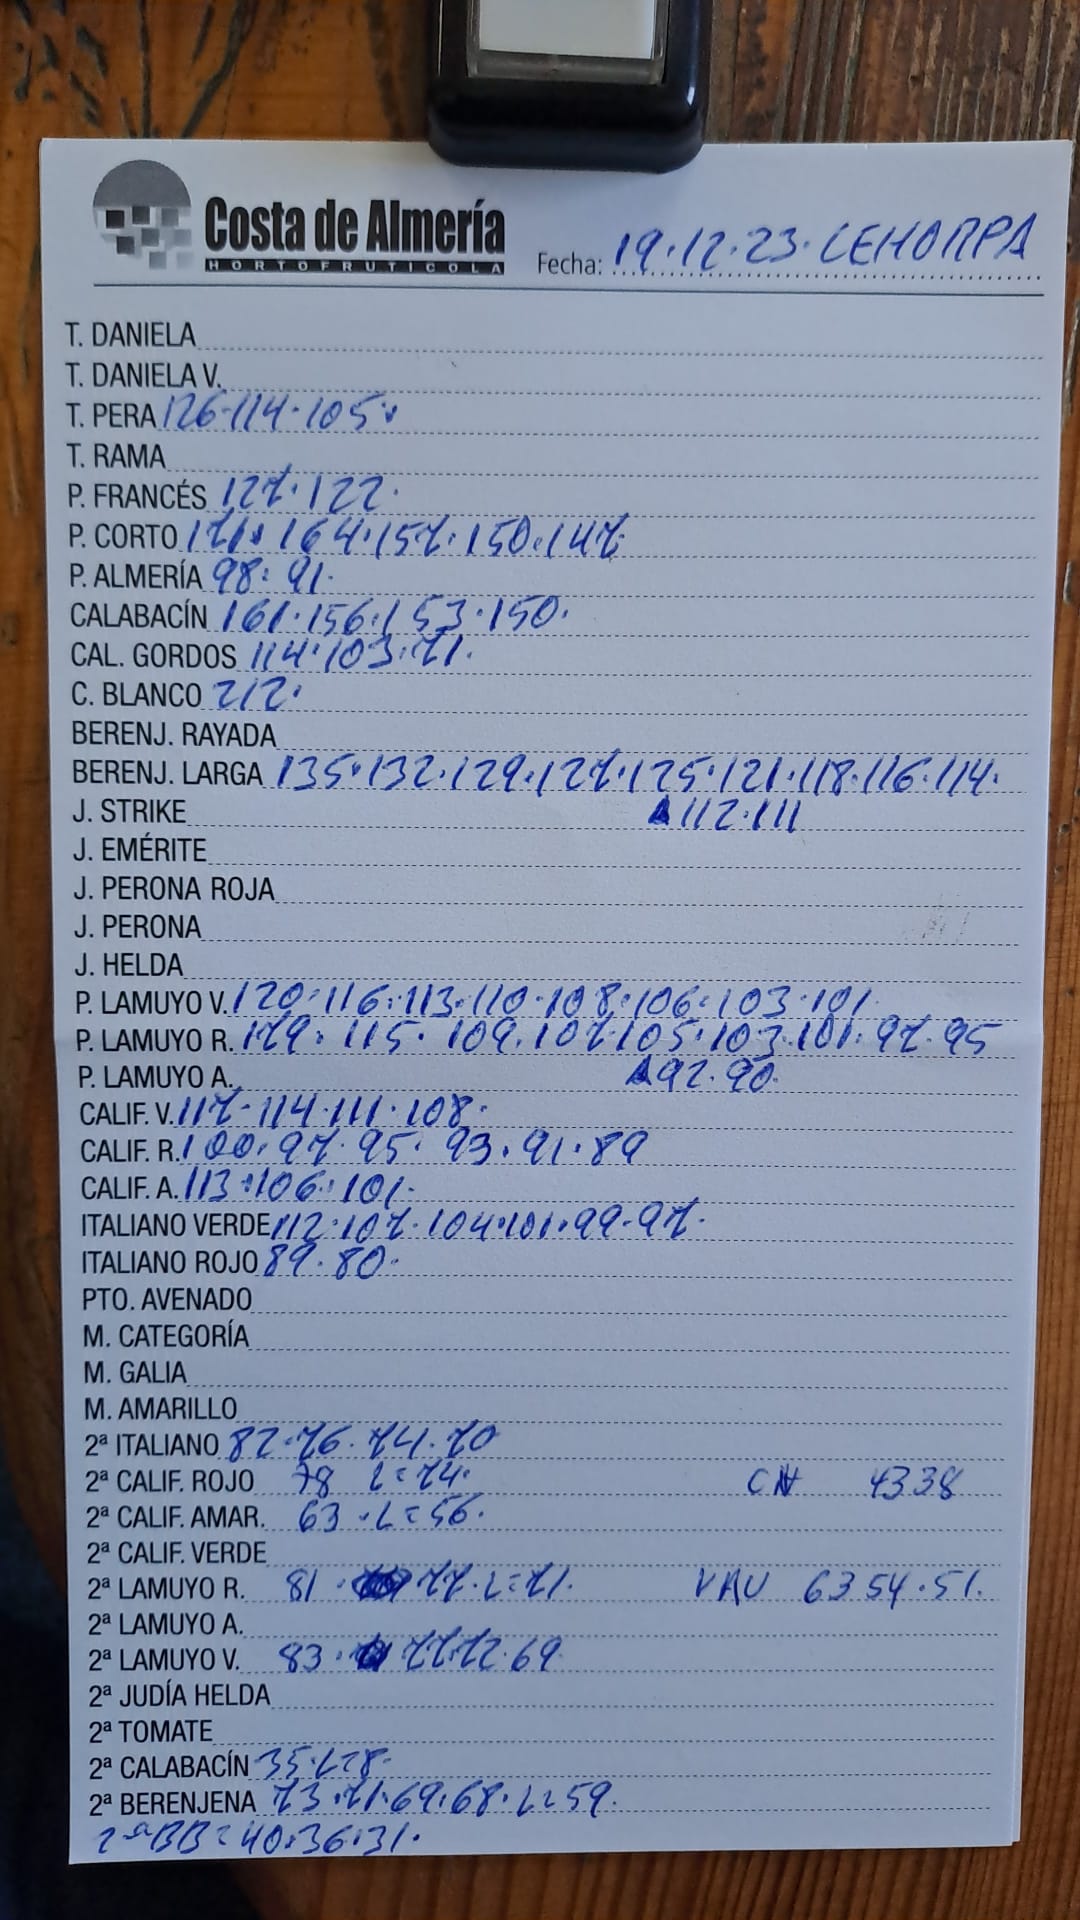 Costa de Almería
HORTOFRUTICOLA
Fecha: 19.12.23. CEHORPA
T. DANIELA
T. DANIELA V.
T. PERA 126.114.105.
T. RAMA
P. FRANCÉS 127.122.
P. CORTO 171. 164.157.150.147
P. ALMERÍA 98. 91.
CALABACÍN 161.156.153.150.
CAL. GORDOS 114.103.71.
C. BLANCO 212.
BERENJ. RAYADA
BERENJ. LARGA 135.132.129.127.125.121.118.116.114.
J. STRIKE 112.111
J. EMÉRITE
J. PERONA ROJA
J. PERONA
J. HELDA
P. LAMUYO V. 120.116.113.110.108.106.103.101.
P. LAMUYO R. 129. 115. 109.107.105.103.101.97.95
P. LAMUYO A. 92.90.
CALIF. V. 117-114.111.108.
CALIF. R. 100.97.95. 93.91.89
CALIF. A. 113.106.101.
ITALIANO VERDE 112.107.104.101.99-97.
ITALIANO ROJO 89.80.
PTO. AVENADO
M. CATEGORÍA
M. GALIA
M. AMARILLO
2ª ITALIANO 82.76.74.70
2ª CALIF. ROJO 78 L=74. CN 4338
2ª CALIF. AMAR. 63 .L=56.
2ª CALIF. VERDE
2ª LAMUYO R. 81. 77.L=71. VAU 63 54.51.
2ª LAMUYO A.
2ª LAMUYO V. 83. 77.72.69
2ª JUDÍA HELDA
2ª TOMATE
2ª CALABACÍN 35.L=8.
2ª BERENJENA 73.71.69.68.L=59.
2ªBB=40.36.31.